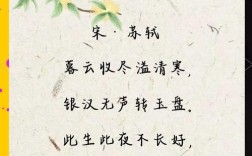 宋·苏轼
暮云收尽溢清寒，
银汉无声转玉盘。
此生此夜不长好，